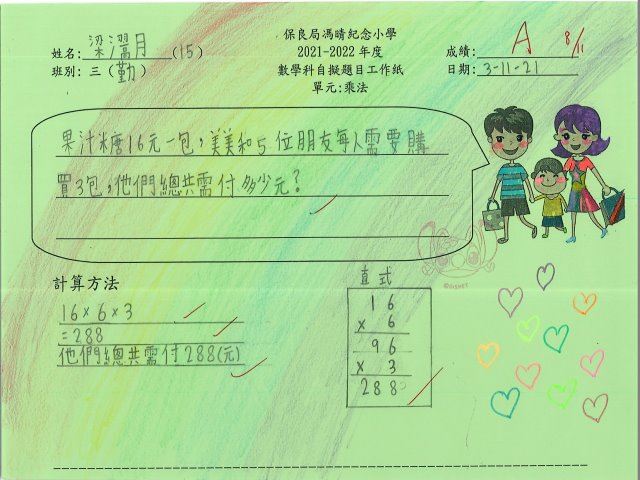 保良局馮晴紀念小學
姓名: 梁濡月 (15)
2021-2022 年度
成績: A 8/11
班別: 三 (勤)
數學科自擬題目工作紙
日期: 3-11-21
單元:乘法
果汁糖16元一包,美美和5位朋友每人需要購
買3包,他們總共需付多少元?
©DISNEY
計算方法
16×6×3
=288
他們總共需付288(元)
直式
16
× 6
96
× 3
288